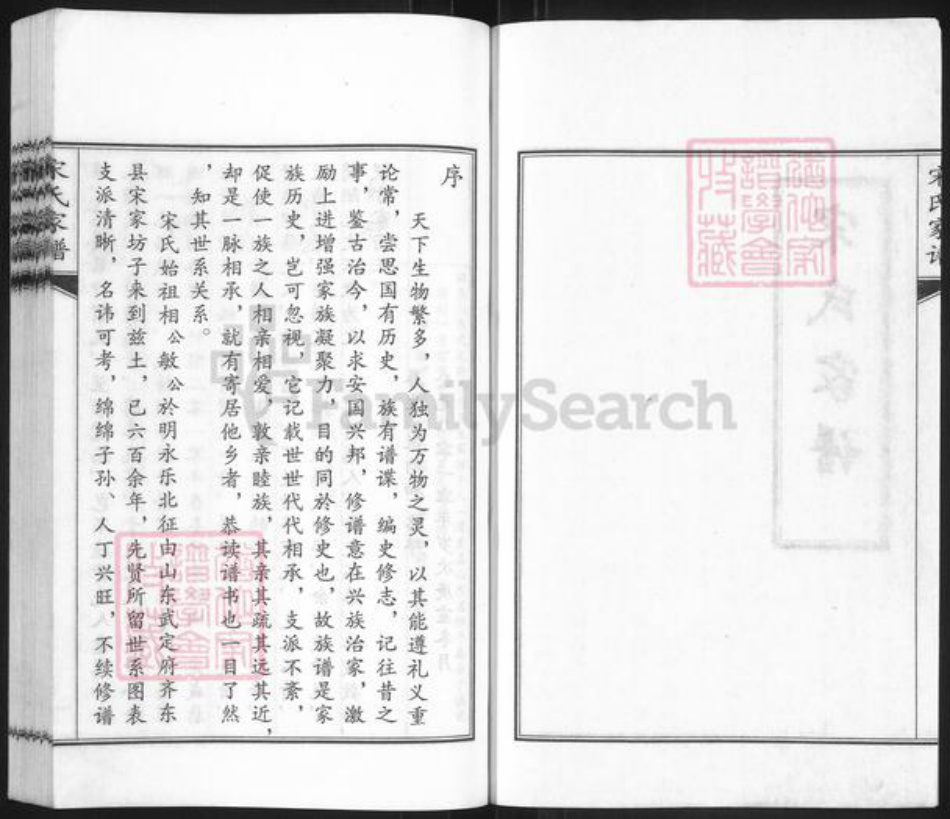 宋氏家谱
序
天下生物繁多，人独为万物之灵，以其能遵礼义重
论常，尝思国有历史，族有谱谍，编史修志，记往昔之
事，鉴古治今，以求安国兴邦，修谱意在兴族治家，激
励上进增强家族凝聚力，目的同於修史也，故族谱是家
族历史，岂可忽视，它记载世世代代相承，支派不紊，
促使一族之人相亲相爱，敦亲睦族，其亲其疏其远其近，
却是一脉相承，就有寄居他乡者，恭读谱书也一目了然
，知其世系关系。
宋氏始祖相公敏公於明永乐北征由山东武定府齐东
县宋家坊子来到兹土，已六百余年，先贤所留世系图表
支派清晰，名讳可考，绵绵子孙、人丁兴旺，不续修谱
宋氏家谱
FamilySearch